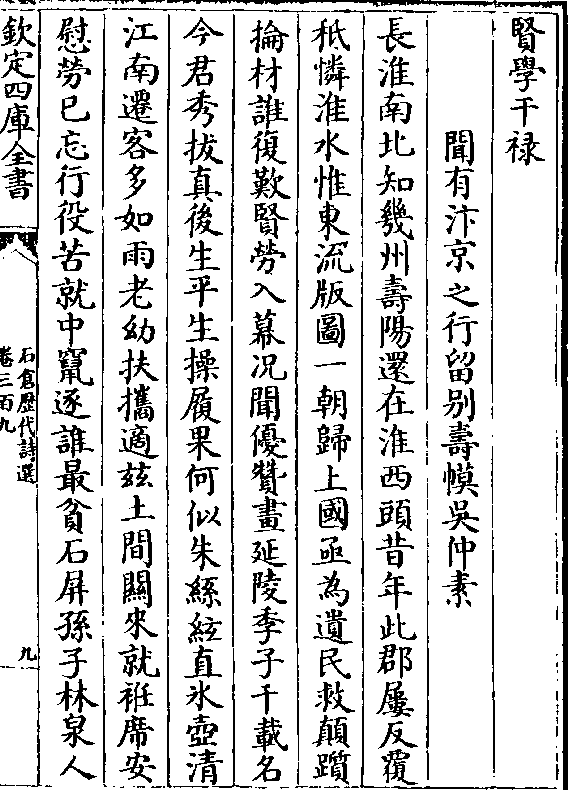 賢學干禄
聞有汴京之行留别壽幙吳仲素
長淮南北知幾州壽陽還在淮西頭昔年此郡屢反覆
秪憐淮水惟東流版圖一朝歸上國亟為遺民救顛躓
掄材誰復歎賢勞入幕况聞優贊畫延陵季子千載名
今君秀拔真後生平生操履果何似朱絲絃直氷壺清
江南遷客多如雨老幼扶攜適兹土間關來就袵席安
慰勞已忘行役苦就中竄逐誰最貧石屏孫子林泉人
欽定四庫全書
石倉歴代詩選
卷三百九
九